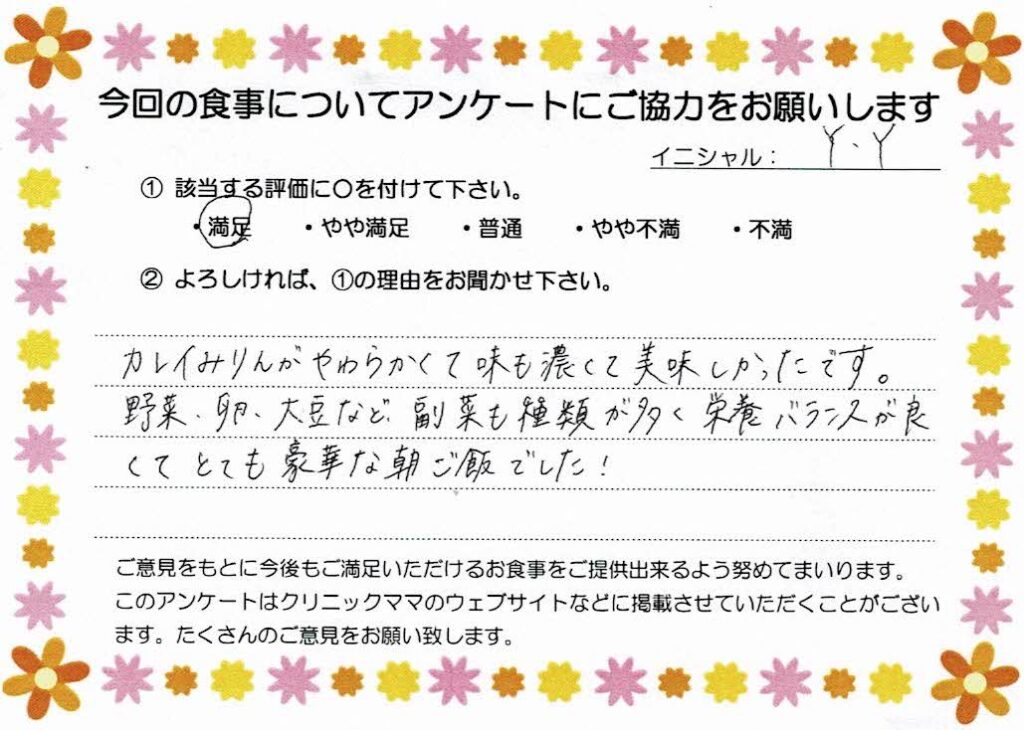 今回の食事についてアンケートにご協力をお願いします
イニシャル： Y、Y
① 該当する評価に〇を付けて下さい。
・満足 ・やや満足 ・普通 ・やや不満 ・不満
② よろしければ、①の理由をお聞かせ下さい。
カレイみりんがやわらかくて味も濃くて美味しかったです。
野菜、卵、大豆など、副菜も種類が多く栄養バランスが良
くてとても豪華な朝ご飯でした！
ご意見をもとに今後もご満足いただけるお食事をご提供出来るよう努めてまいります。
このアンケートはクリニックママのウェブサイトなどに掲載させていただくことがござい
ます。たくさんのご意見をお願い致します。